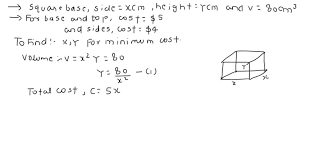 → Square base, side = xcm, height = Ycm and v = 80cm³
→ For base and top, cost = $5
and sides, cost = $4
To Find:- x, Y For minimum cost
Volume :- V = x² Y = 80
Y = 80/x² —(1)
Y
x
x
Total cost, C = 5x